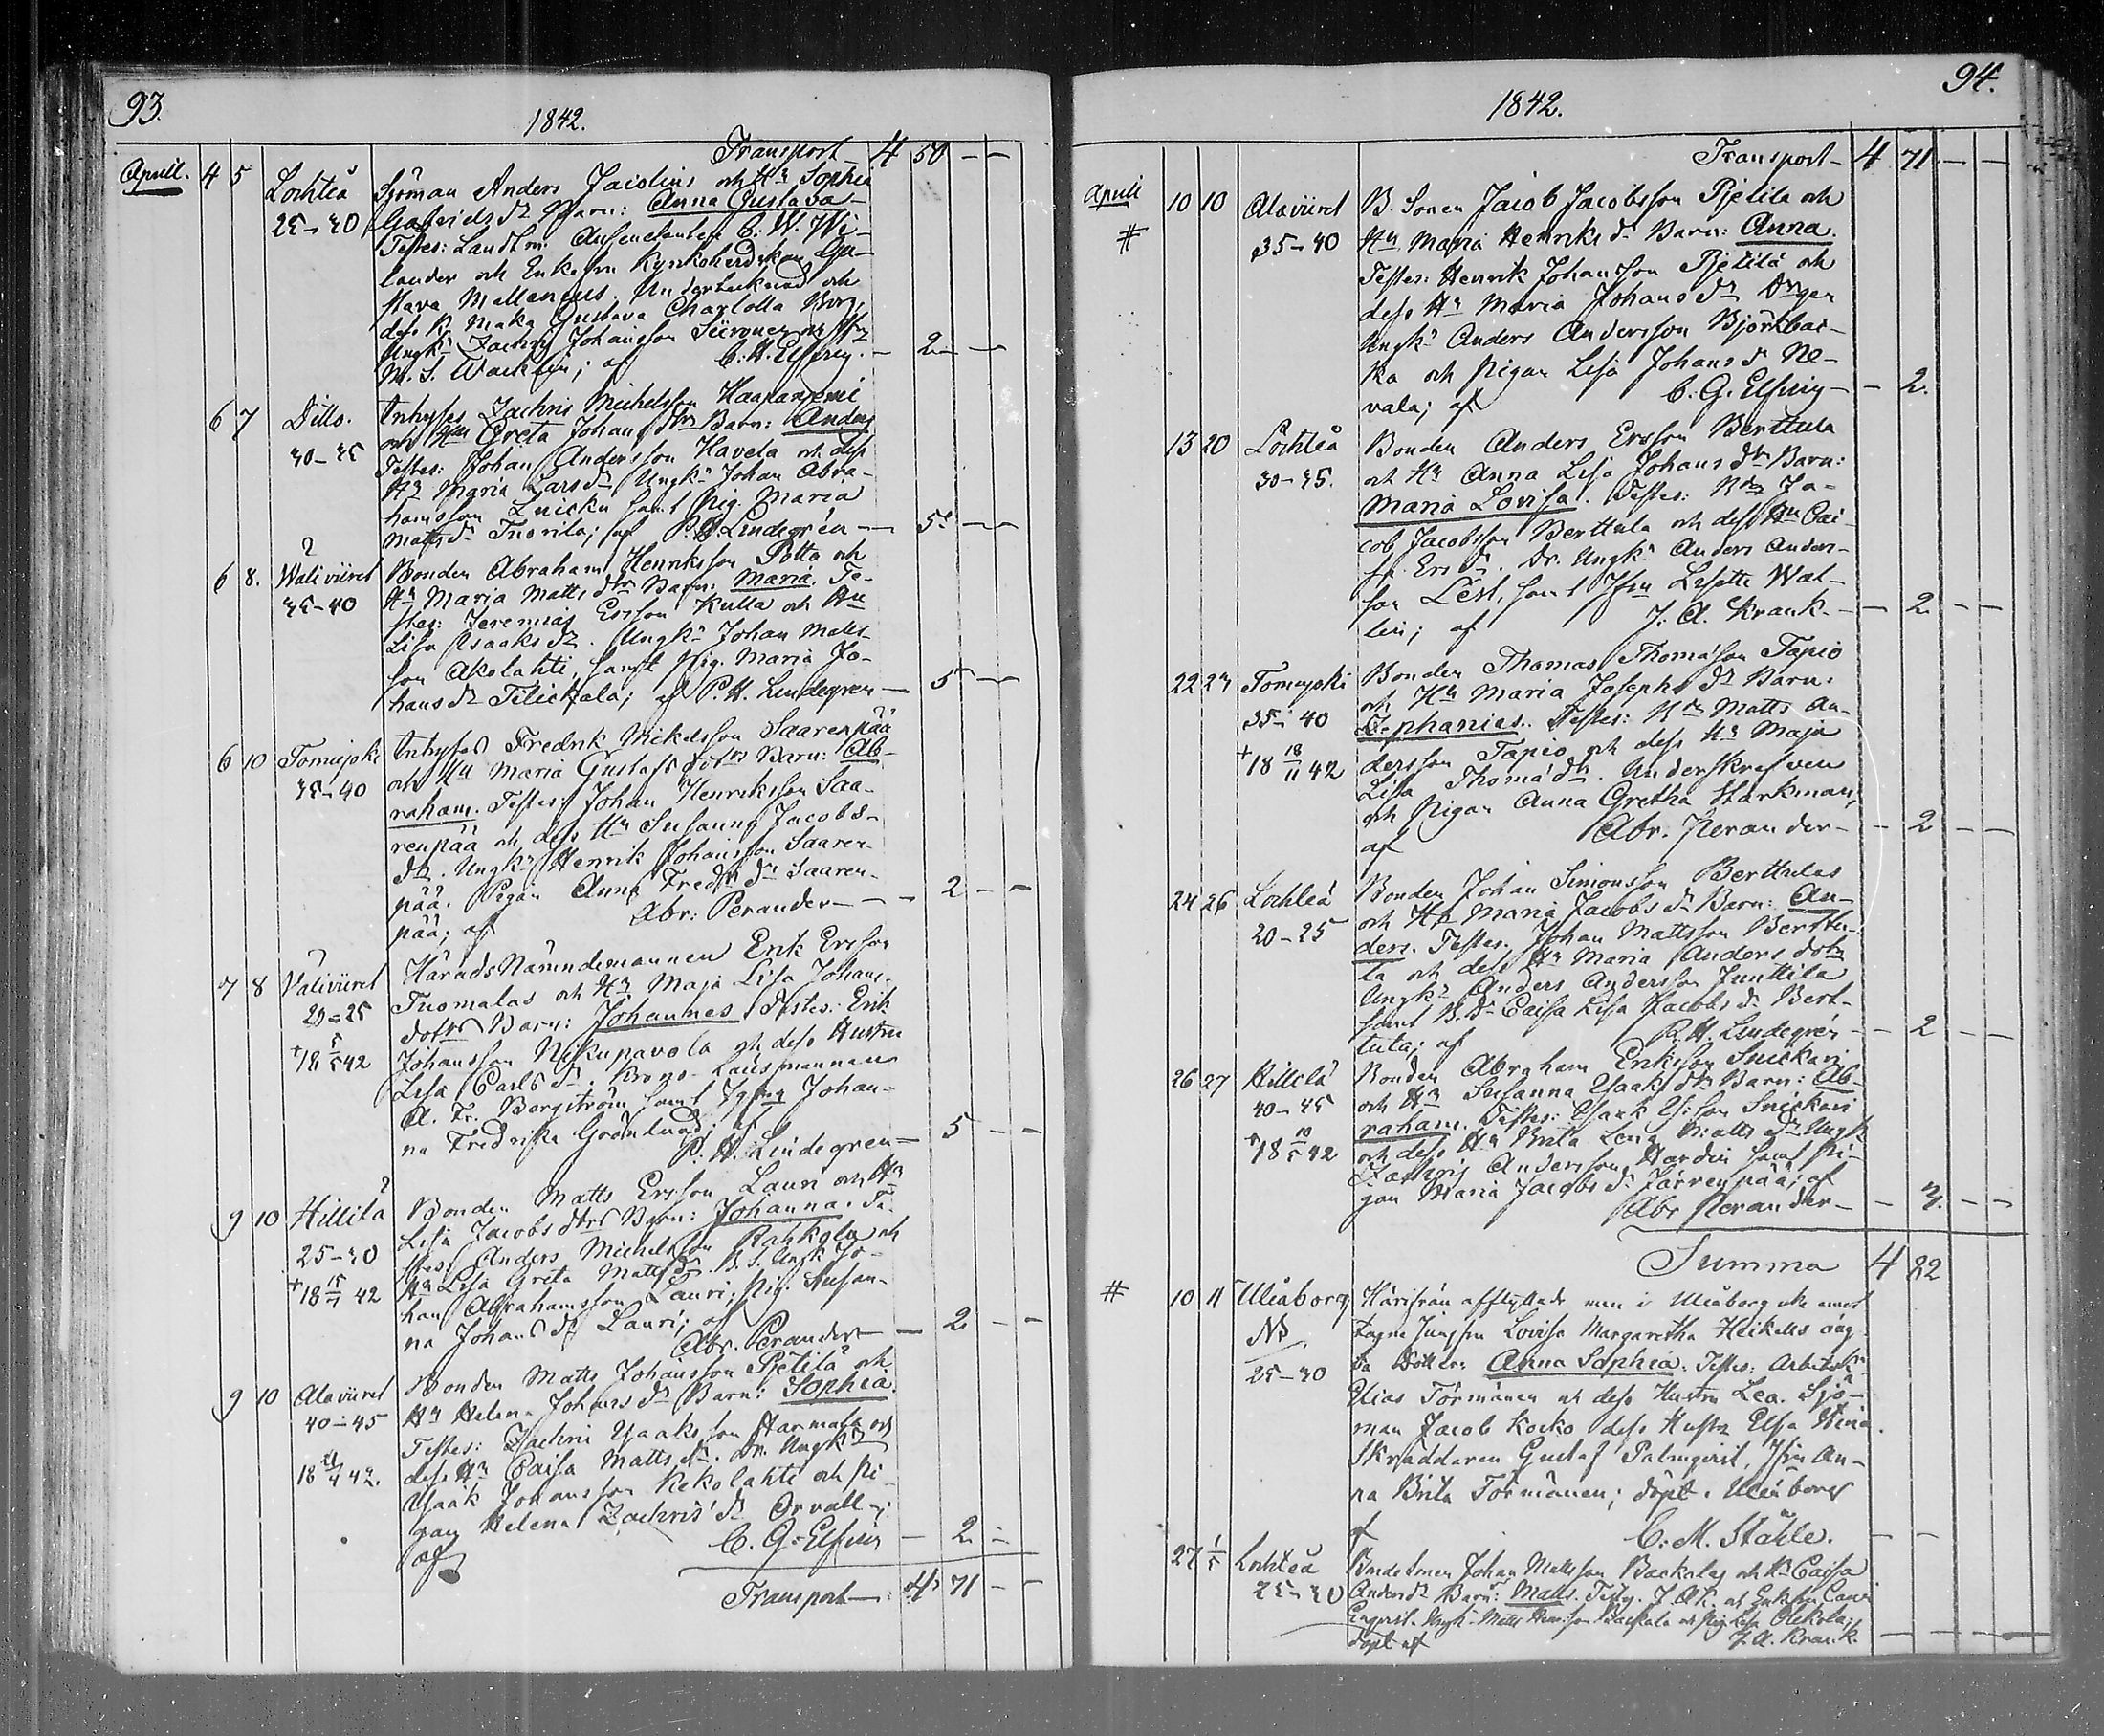 93.
1842.
Transport 4 50 — —
April. 4 5 Lochteå Sjöman Anders Jacolius och Hu Sophia
25–30 Gabriels dr Barn: Anna Gustava
Testes: Landtm. Auscultanten C. W. Wi-
lander och Enkefru Kyrkoherdskan Gu-
stava Mellenius. Undertecknad och
dess K. Maka Gustava Charlotta Borg,
Ungk. Zachris Johansson Siironen och Jfr
M. S. Wacklin; af C. H. Elfving. — 2 — —
6 7 Ditto. Inhyses Zachris Michelsson Haapaniemi
30–35 och Hu Greta Johans dr Barn: Anders
Testes: Johan Andersson Havela och dess
Hu Maria Lars dr Ungk. Johan Abra-
hamsson Luicku samt Pig. Maria
Matts dr Tuorila; af P. H. Lindegrén — 5 — —
6 8. Wäliviiret Bonden Abraham Henriksson Potta och
35–40 Hu Maria Matts dr Barn: Maria. Te-
stes: Jeremias Ersson Kulla och Hu
Lisa Isaaks dr. Ungk. Johan Matts-
son Akolahti, samt Pig. Maria Jo-
hans dr Tilickala; af P. H. Lindegren — 5 — —
6 10 Tomujoki Inhyses Fredrik Mickelsson Saarenpää
35–40 och Hu Maria Gustafs dotrs Barn: Ab-
raham. Testes: Johan Henriksson Saa-
renpää och dess Hu Susanna Jacobs-
dr. Ungk. Henrik Johansson Saaren-
pää. Pigan Anna Fredr. dr Saaren-
pää; af Abr: Perander — — 2 — —
7 8 Väliviiret Härads Nämndemannen Erik Ersson
20–25 Tuomalas och Hu Maja Lisa Johans
+18 5/5 42 dotrs Barn: Johannes Testes: Erik
Johansson Nikupavola och dess Hustru
Lisa Carls dr. Krono-Länsmannen
A. Fr. Bergström samt Jgfru Johan-
na Fredrika Grönlund; af
P. H. Lindegren — 5 — —
9 10 Hillilä Bonden Matts Ersson Lauri och Hu
25–30 Lisa Jacobs dtrs Barn: Johanna. Te-
stes: Anders Michelsson Rahkola och
+18 15/7 42 Hu Lisa Greta Matts dr. B. S. Ungk. Jo-
han Abrahamsson Lauri; Pig. Susan-
na Johans dr Lauri; af
Abr. Perander — 2 — —
9 10 Alaviiret Bonden Matts Johansson Pjetilä och
40–45 Hu Helena Johans dr Barn: Sophia.
Testes: Zachris Isaaksson Harmala och
dess Hu Caisa Matts dr. Dr. Ungk.
Isaak Johansson Kekolahti och Pi-
gan Helena Zachris dr Orvall;
af C. G. Elfving — 2 —
Transport — 4 71 — —
94.
1842.
Transport — 4 71 — —
April 10 10 Alaviiret B. Sonen Jacob Jacobsson Pjetilä och
# 35–40 Hu Maria Henriks dr Barn: Anna.
Testes: Henrik Johansson Pjetilä och
dess Hu Maria Johans dr
Ungk. Anders Andersson Björkbac-
ka och Pigan Lisa Johans dr Ne-
vala; af C. G. Elfving — — 2.
13 20 Lochteå Bonden Anders Ersson Berttula
30–35. och Hu Anna Lisa Johans dr Barn:
Maria Lovisa. Testes: Bdn Ja-
cob Jacobsson Berttula och dess Hu Cai-
sa Ers dr. Dr. Ungk. Anders Anders-
son Lest, samt Jfru Lisette Wack-
lin; af J. A. Krank. — — 2 — —
22 24 Tomujoki Bonden Thomas Thomasson Tapio
35–40 och Hu Maria Josephs dr Barn:
+18 18/11 42 Zephanias. Testes: Bdn Matts An-
dersson Tapio och dess Hu Maja
Lisa Thomas dr. Underskrefven
och Pigan Anna Gretha Starkman,
af Abr. Perander — — 2 — —
24 26 Lochteå Bonden Johan Simonsson Berttulas
20–25 och Hu Maria Jacobs dr Barn: An-
ders. Testes: Johan Mattsson Berttu-
la och dess Hu Maria Anders dotr
Ungk. Anders Andersson Junttila
samt B. Dr Caisa Lisa Jacobs dr Bert-
tula; af P. H. Lindegrén — — 2 — —
26 27 Hillilä Bonden Abraham Eriksson Snickari
40–45 och Hu Susanna Isaaks dr Barn: Ab-
+18 10/5 42 raham. Testes: Isaak Is:son Snickari
och dess Hu Brita Lena Matts dr Ungk.
Zachris Andersson Hardin samt Pi-
gan Maria Jacobs dr Järvenpää; af
Abr Perander — — 3. — —
Summa 4 82
# 10 11 Uleåborg Härifrån afflyttade men i Uleåborg
NB Jungfru Lovisa Margaretha Heikells oäg-
25–30 ta dotter: Anna Sophia. Testes: Arbetsk.
Elias Törmänen och dess Hustru Lea. Sjö-
man Jacob Kocko dess Hustr Elsa Stina.
Skräddaren Gustaf Palmqvist, Jfru An-
na Brita Törmänen; döpt i Uleåborg
af C. M. Ståhle. — —
27 1/5 Lochteå Bondesonen Johan Mattsson Backalas och H. Caisa
25–30 Anders dr Barn: Matts. Testes. J. A. K. och Enkefru
Engvist. Ungk. Matts Backala och Pig. Lisa Olkola;
döpt af J. A. Krank. — — — —